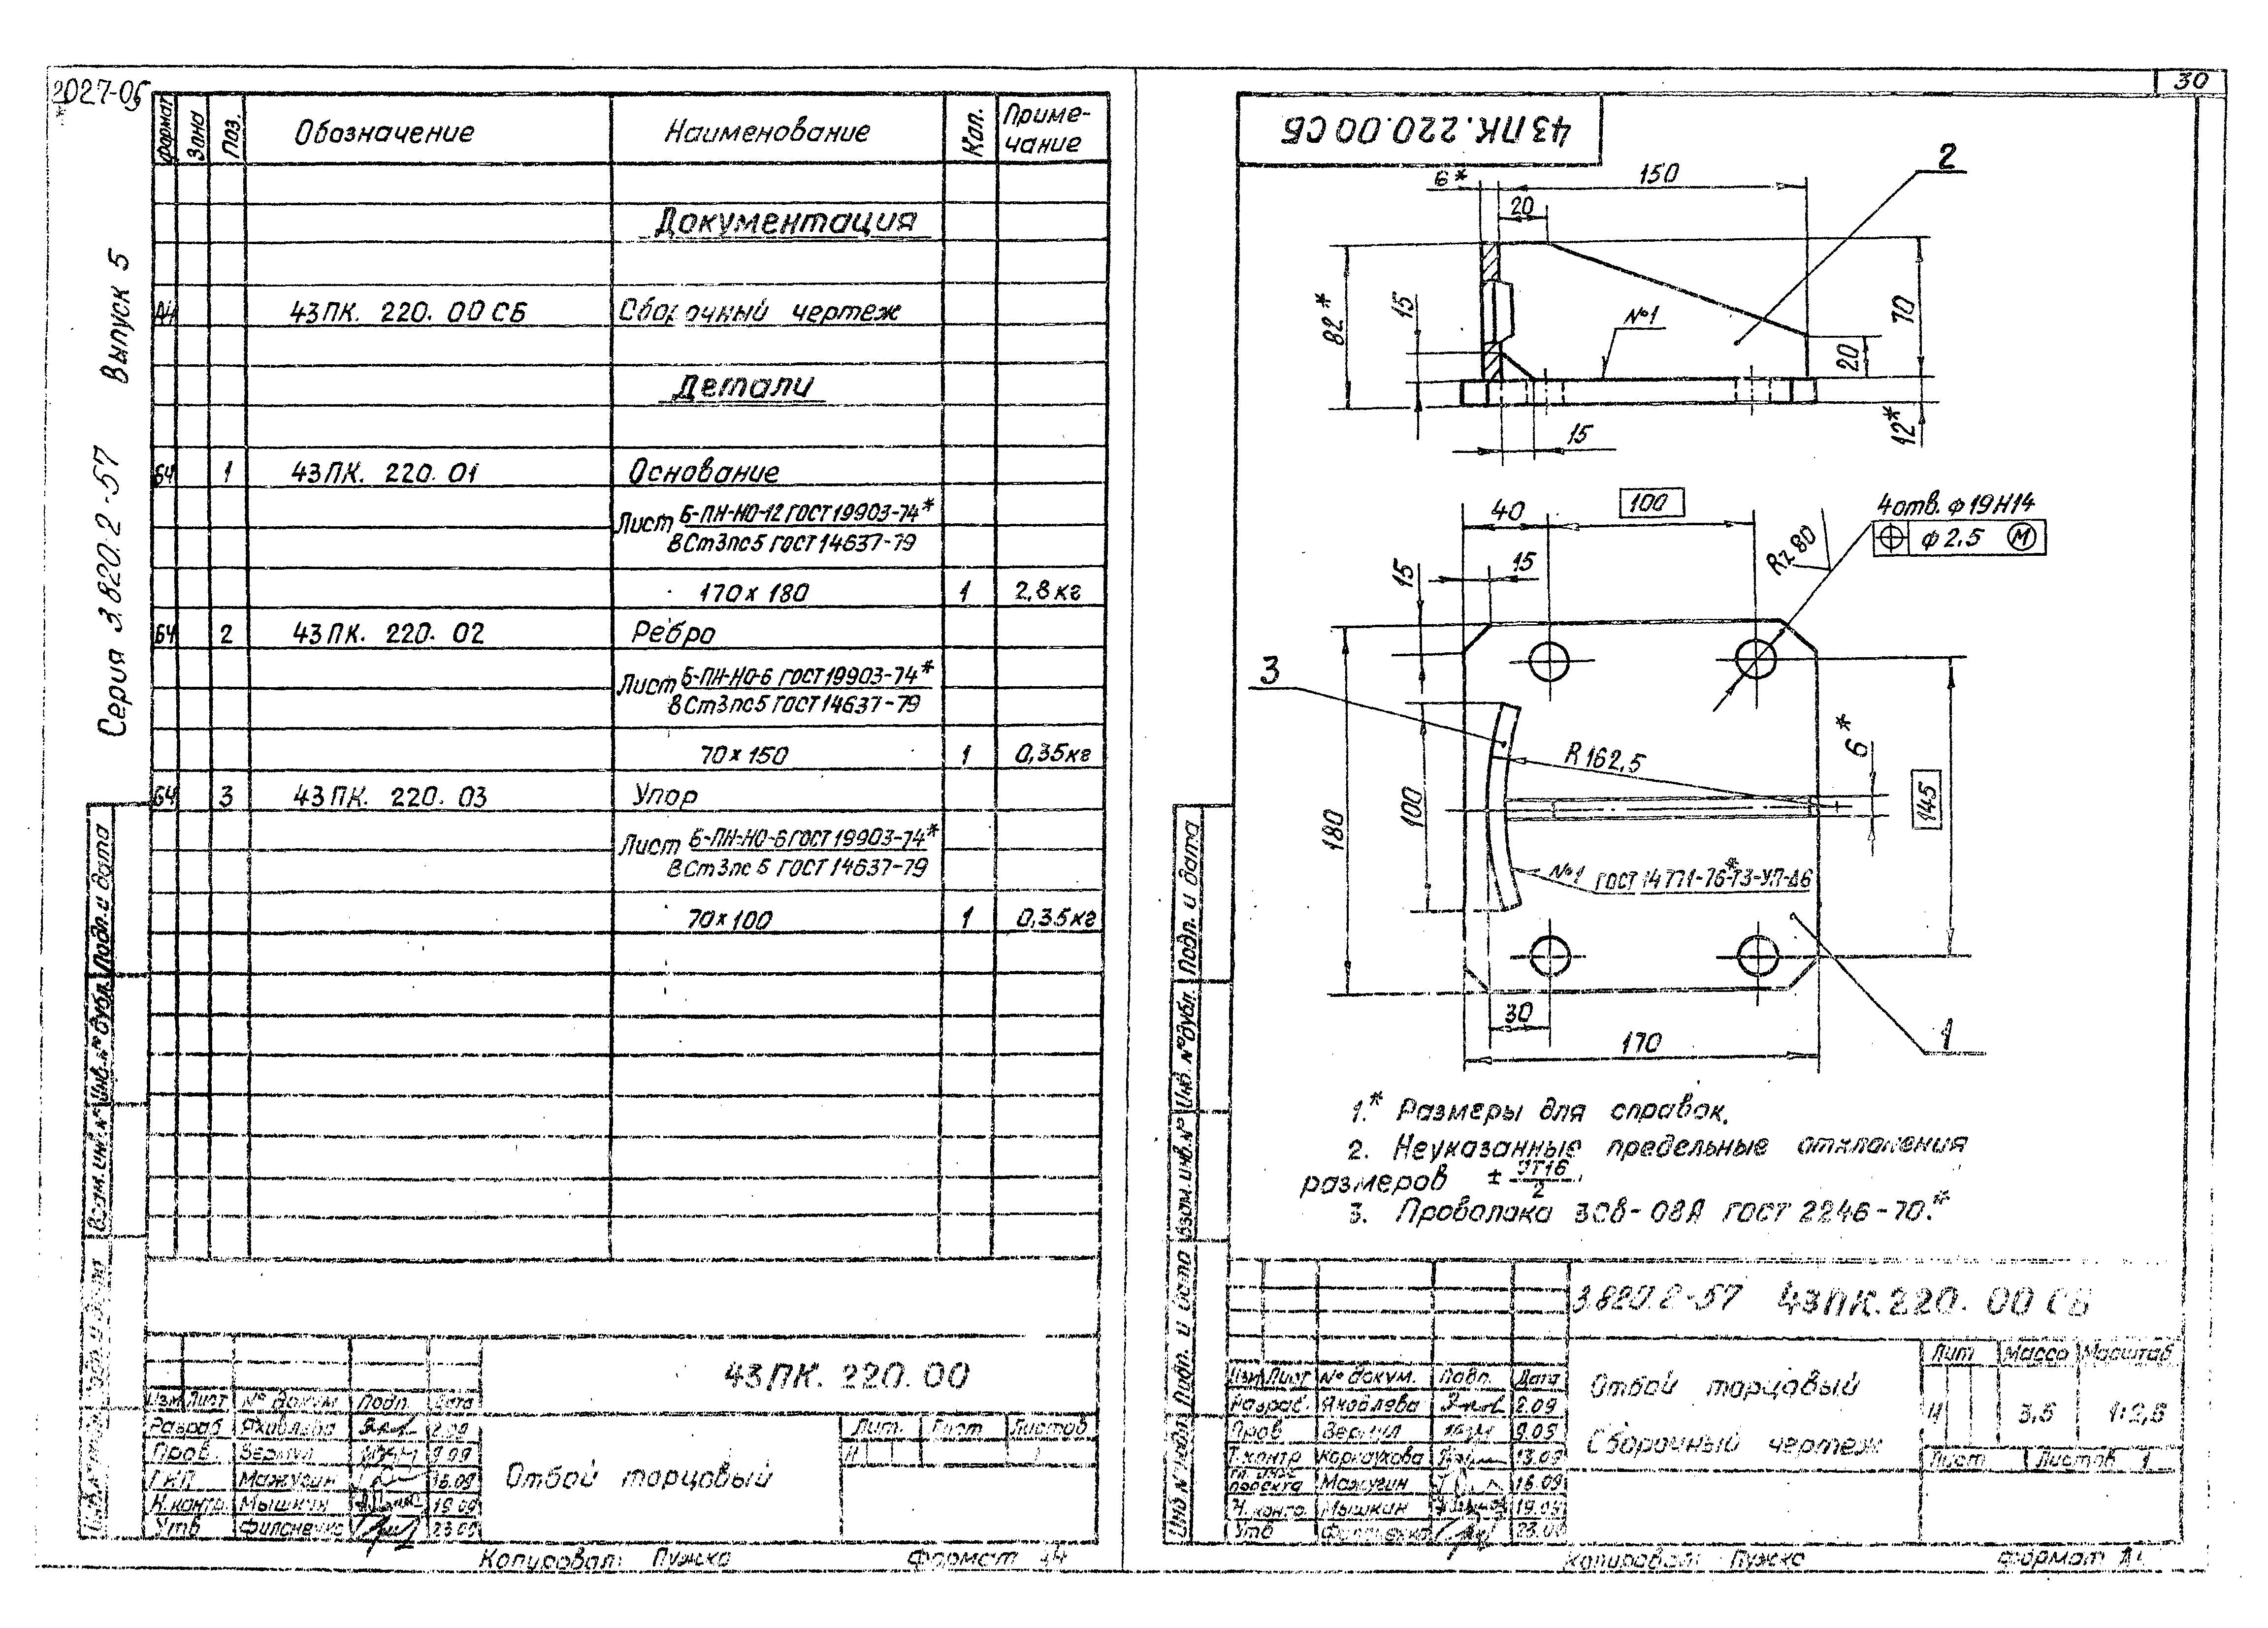 2027-05
Серия 3.820.2-57 Выпуск 5
Формат Зона Поз. Обозначение Наименование Кол. Приме-
чание
Документация
А4 43ПК. 220. 00 СБ Сборочный чертеж
Детали
Б4 1 43ПК. 220. 01 Основание
Лист Б-ПН-НО-12 ГОСТ 19903-74*
ВСт3пс5 ГОСТ 14637-79
170х180 1 2,8кг
Б4 2 43ПК. 220. 02 Ребро
Лист Б-ПН-НО-6 ГОСТ 19903-74*
ВСт3пс5 ГОСТ 14637-79
70х150 1 0,35кг
Б4 3 43ПК. 220. 03 Упор
Лист Б-ПН-НО-6 ГОСТ 19903-74*
ВСт3пс5 ГОСТ 14637-79
70х100 1 0,35кг
Подп. и дата
Инв. № дубл.
Взам. инв. №
43ПК. 220. 00
Изм Лист № докум Подп. Дата
Разраб Яковлева 2.09
Пров. Вермул 9.09
ГИП Мажугин 16.09
Н.контр. Мышкин 19.09
Утв Филоненко
Отбой торцовый
Лит. Лист Листов
И
Копировал: Пужко Формат А4
30
43ПК.220.00СБ
6* 150 2
20
82* 15 №1 70
20
12*
15
40 100 4отв. ф19Н14
ф2,5 М
Rz80
15 15
3
R162,5 6*
180 100 145
№1 ГОСТ 14771-76*-Т3-УП-Δ6
30
170 1
1.* Размеры для справок.
2. Неуказанные предельные отклонения
размеров ± IT16/2
3. Проволока 3Св-08А ГОСТ 2246-70.*
Подп. и дата
Инв. № дубл.
Взам. инв. №
Подп. и дата
Инв № подл.
3.820.2-57 43ПК.220. 00 СБ
Изм Лист № докум. Подп. Дата
Разраб. Яковлева 2.09
Пров Вермул 9.09
Т.контр Коркаухова 13.09
Гл. инж
проекта Мажугин 16.09
Н.контр. Мышкин 19.09
Утв Филоненко
Отбой торцовый
Сборочный чертеж
Лит Масса Масштаб
И 3,5 1:2,5
Лист Листов 1
Копировал: Пужко Формат А4